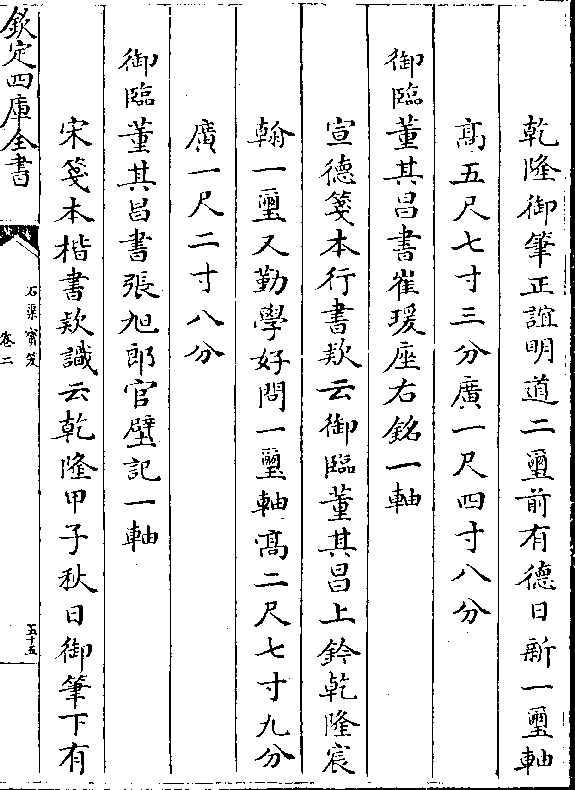 乾隆御筆正誼明道二璽前有德日新一璽軸
髙五尺七寸三分廣一尺四寸八分
御臨董其昌書崔瑗座右銘一軸
宣德箋本行書欵云御臨董其昌上鈐乾隆宸
翰一璽又勤學好問一璽軸髙二尺七寸九分
廣一尺二寸八分
御臨董其昌書張旭郎官壁記一軸
宋箋本楷書欵識云乾隆甲子秋日御筆下有
欽定四庫全書
石渠寳笈
卷二
五十五